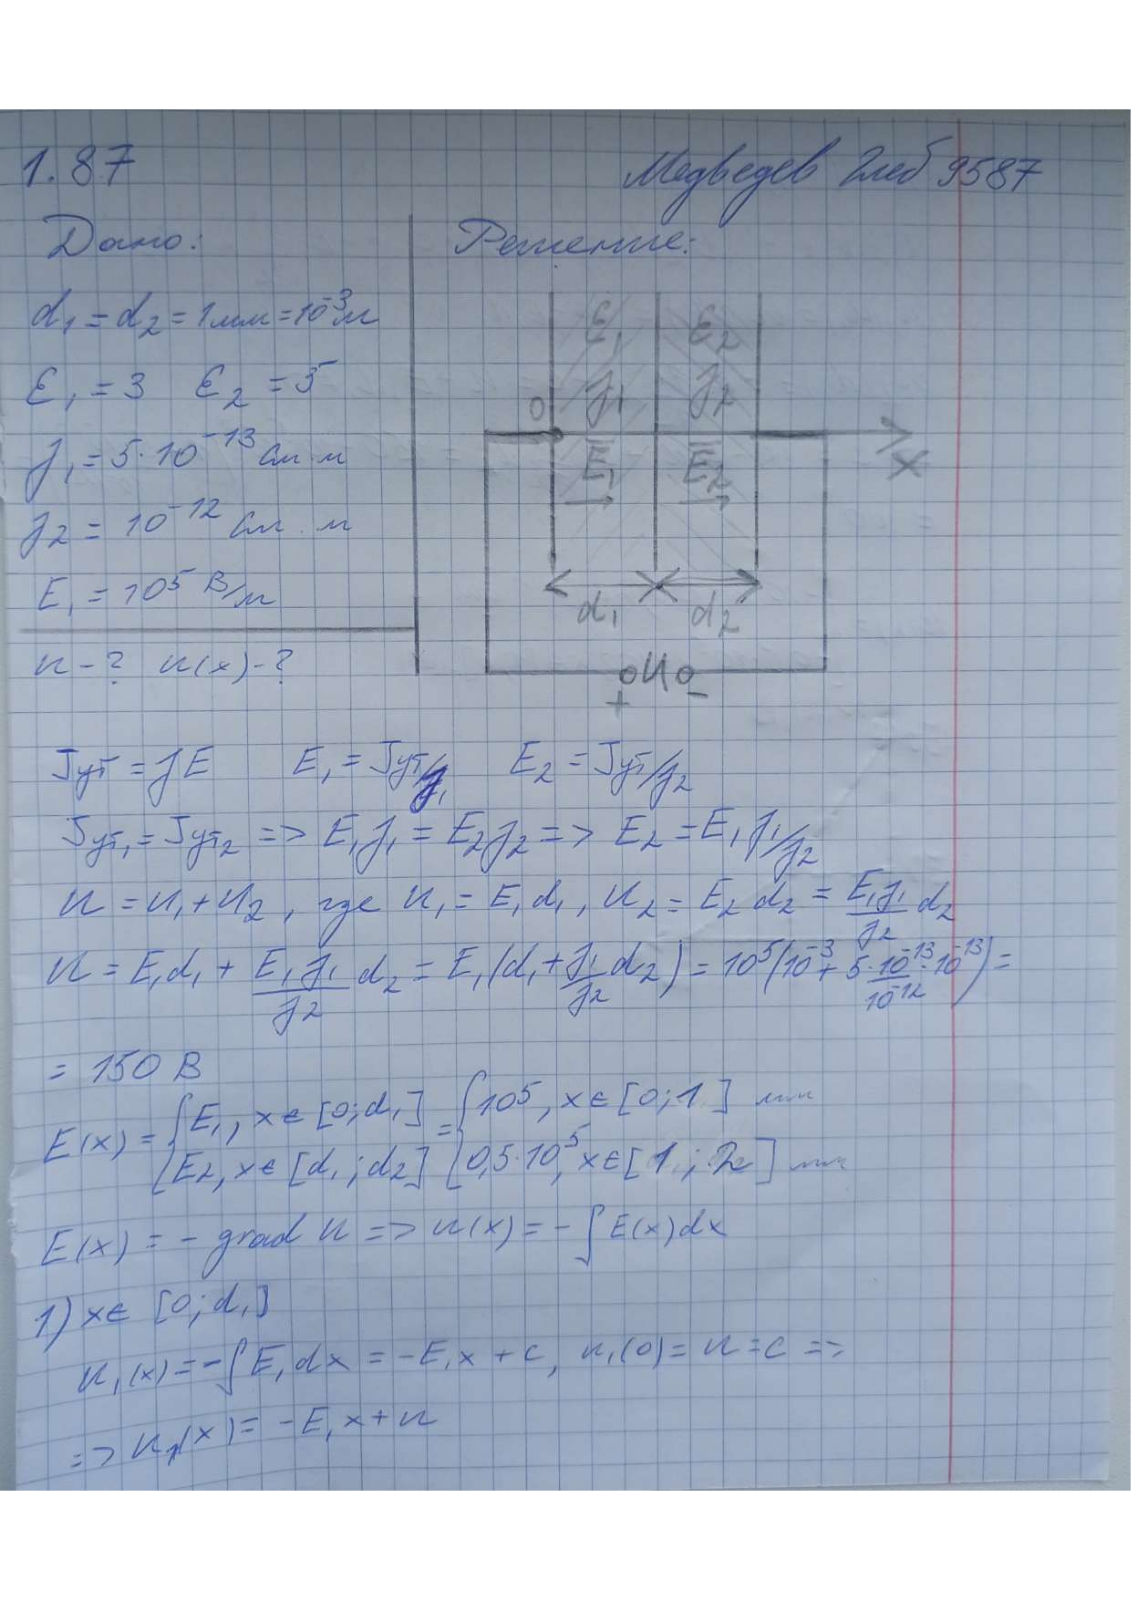 1.87 Медведев Глеб 9587
Дано: Решение:
d₁ = d₂ = 1мм = 10⁻³м
ε₁ = 3 ε₂ = 5
γ₁ = 5·10⁻¹³ См м
γ₂ = 10⁻¹² См . м
E₁ = 10⁵ В/м
u - ? u(x) - ?
ε₁ ε₂
γ₁ γ₂
0
E̅₁ E̅₂ x
d₁ d₂
U
+ −
Jут = γE E₁ = Jут/γ₁ E₂ = Jут/γ₂
Jут₁ = Jут₂ => E₁γ₁ = E₂γ₂ => E₂ = E₁γ₁/γ₂
u = u₁ + u₂, где u₁ = E₁d₁, u₂ = E₂d₂ = E₁γ₁/γ₂ d₂
u = E₁d₁ + E₁γ₁/γ₂ d₂ = E₁(d₁ + γ₁/γ₂ d₂) = 10⁵(10⁻³ + 5·10⁻¹³/10⁻¹² · 10⁻¹³) =
= 150 В
E(x) = { E₁, x ∈ [0; d₁] = { 10⁵, x ∈ [0; 1] мм
E₂, x ∈ [d₁; d₂] 0,5·10⁵, x ∈ [1; 2] мм
E(x) = − grad u => u(x) = − ∫ E(x)dx
1) x ∈ [0; d₁]
u₁(x) = −∫ E₁dx = −E₁x + c, u₁(0) = u = c =>
=> u₁(x) = −E₁x + u